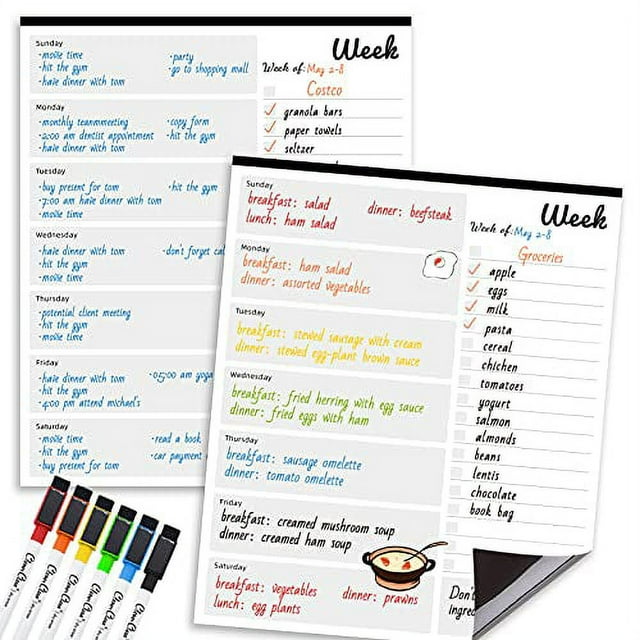 Week
Week of: May 2-8
Costco
granola bars
paper towels
seltzer
Sunday
·movie time
·hit the gym
·have dinner with tom
·party
·go to shopping mall
Monday
·monthly teammmeeting
·2:00 am dentist appointment
·have dinner with tom
·copy form
·hit the gym
Tuesday
·buy present for tom
·7:00 am have dinner with tom
·movie time
·hit the gym
Wednesday
·have dinner with tom
·hit the gym
·movie time
·don't forget
Thursday
·potential client meeting
·hit the gym
·movie time
Friday
·have dinner with tom
·hit the gym
·4:00 pm attend michael's
·05:00 am yoga
Saturday
·movie time
·hit the gym
·buy present for tom
·read a book
·car payment
Week
Week of: May 2-8
Groceries
apple
eggs
milk
pasta
cereal
chichen
tomatoes
yogurt
salmon
almonds
beans
lentis
chocolate
book bag
Sunday
breakfast: salad
lunch: ham salad
dinner: beefsteak
Monday
breakfast: ham salad
dinner: assorted vegetables
Tuesday
breakfast: stewed sausage with cream
dinner: stewed egg-plant brown sauce
Wednesday
breakfast: fried herring with egg sauce
dinner: fried eggs with ham
Thursday
breakfast: sausage omelette
dinner: tomato omelette
Friday
breakfast: creamed mushroom soup
dinner: creamed ham soup
Saturday
breakfast: vegetables
lunch: egg plants
dinner: prawns
Don't